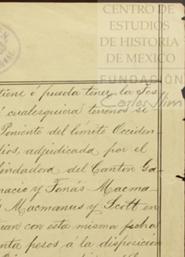 CENTRO DE
ESTUDIOS
DE HISTORIA
DE MEXICO
FUNDACIÓN
Carlos Slim
tiene ó pueda tener la
cualesquiera terrenos
Poniente del limite Occiden
dios, adjudicada por el
lindadora del Canton
nacio y Tomás Macma
Macmanus y Scott en
con esta misma fecha
nta pesos á la disposicion